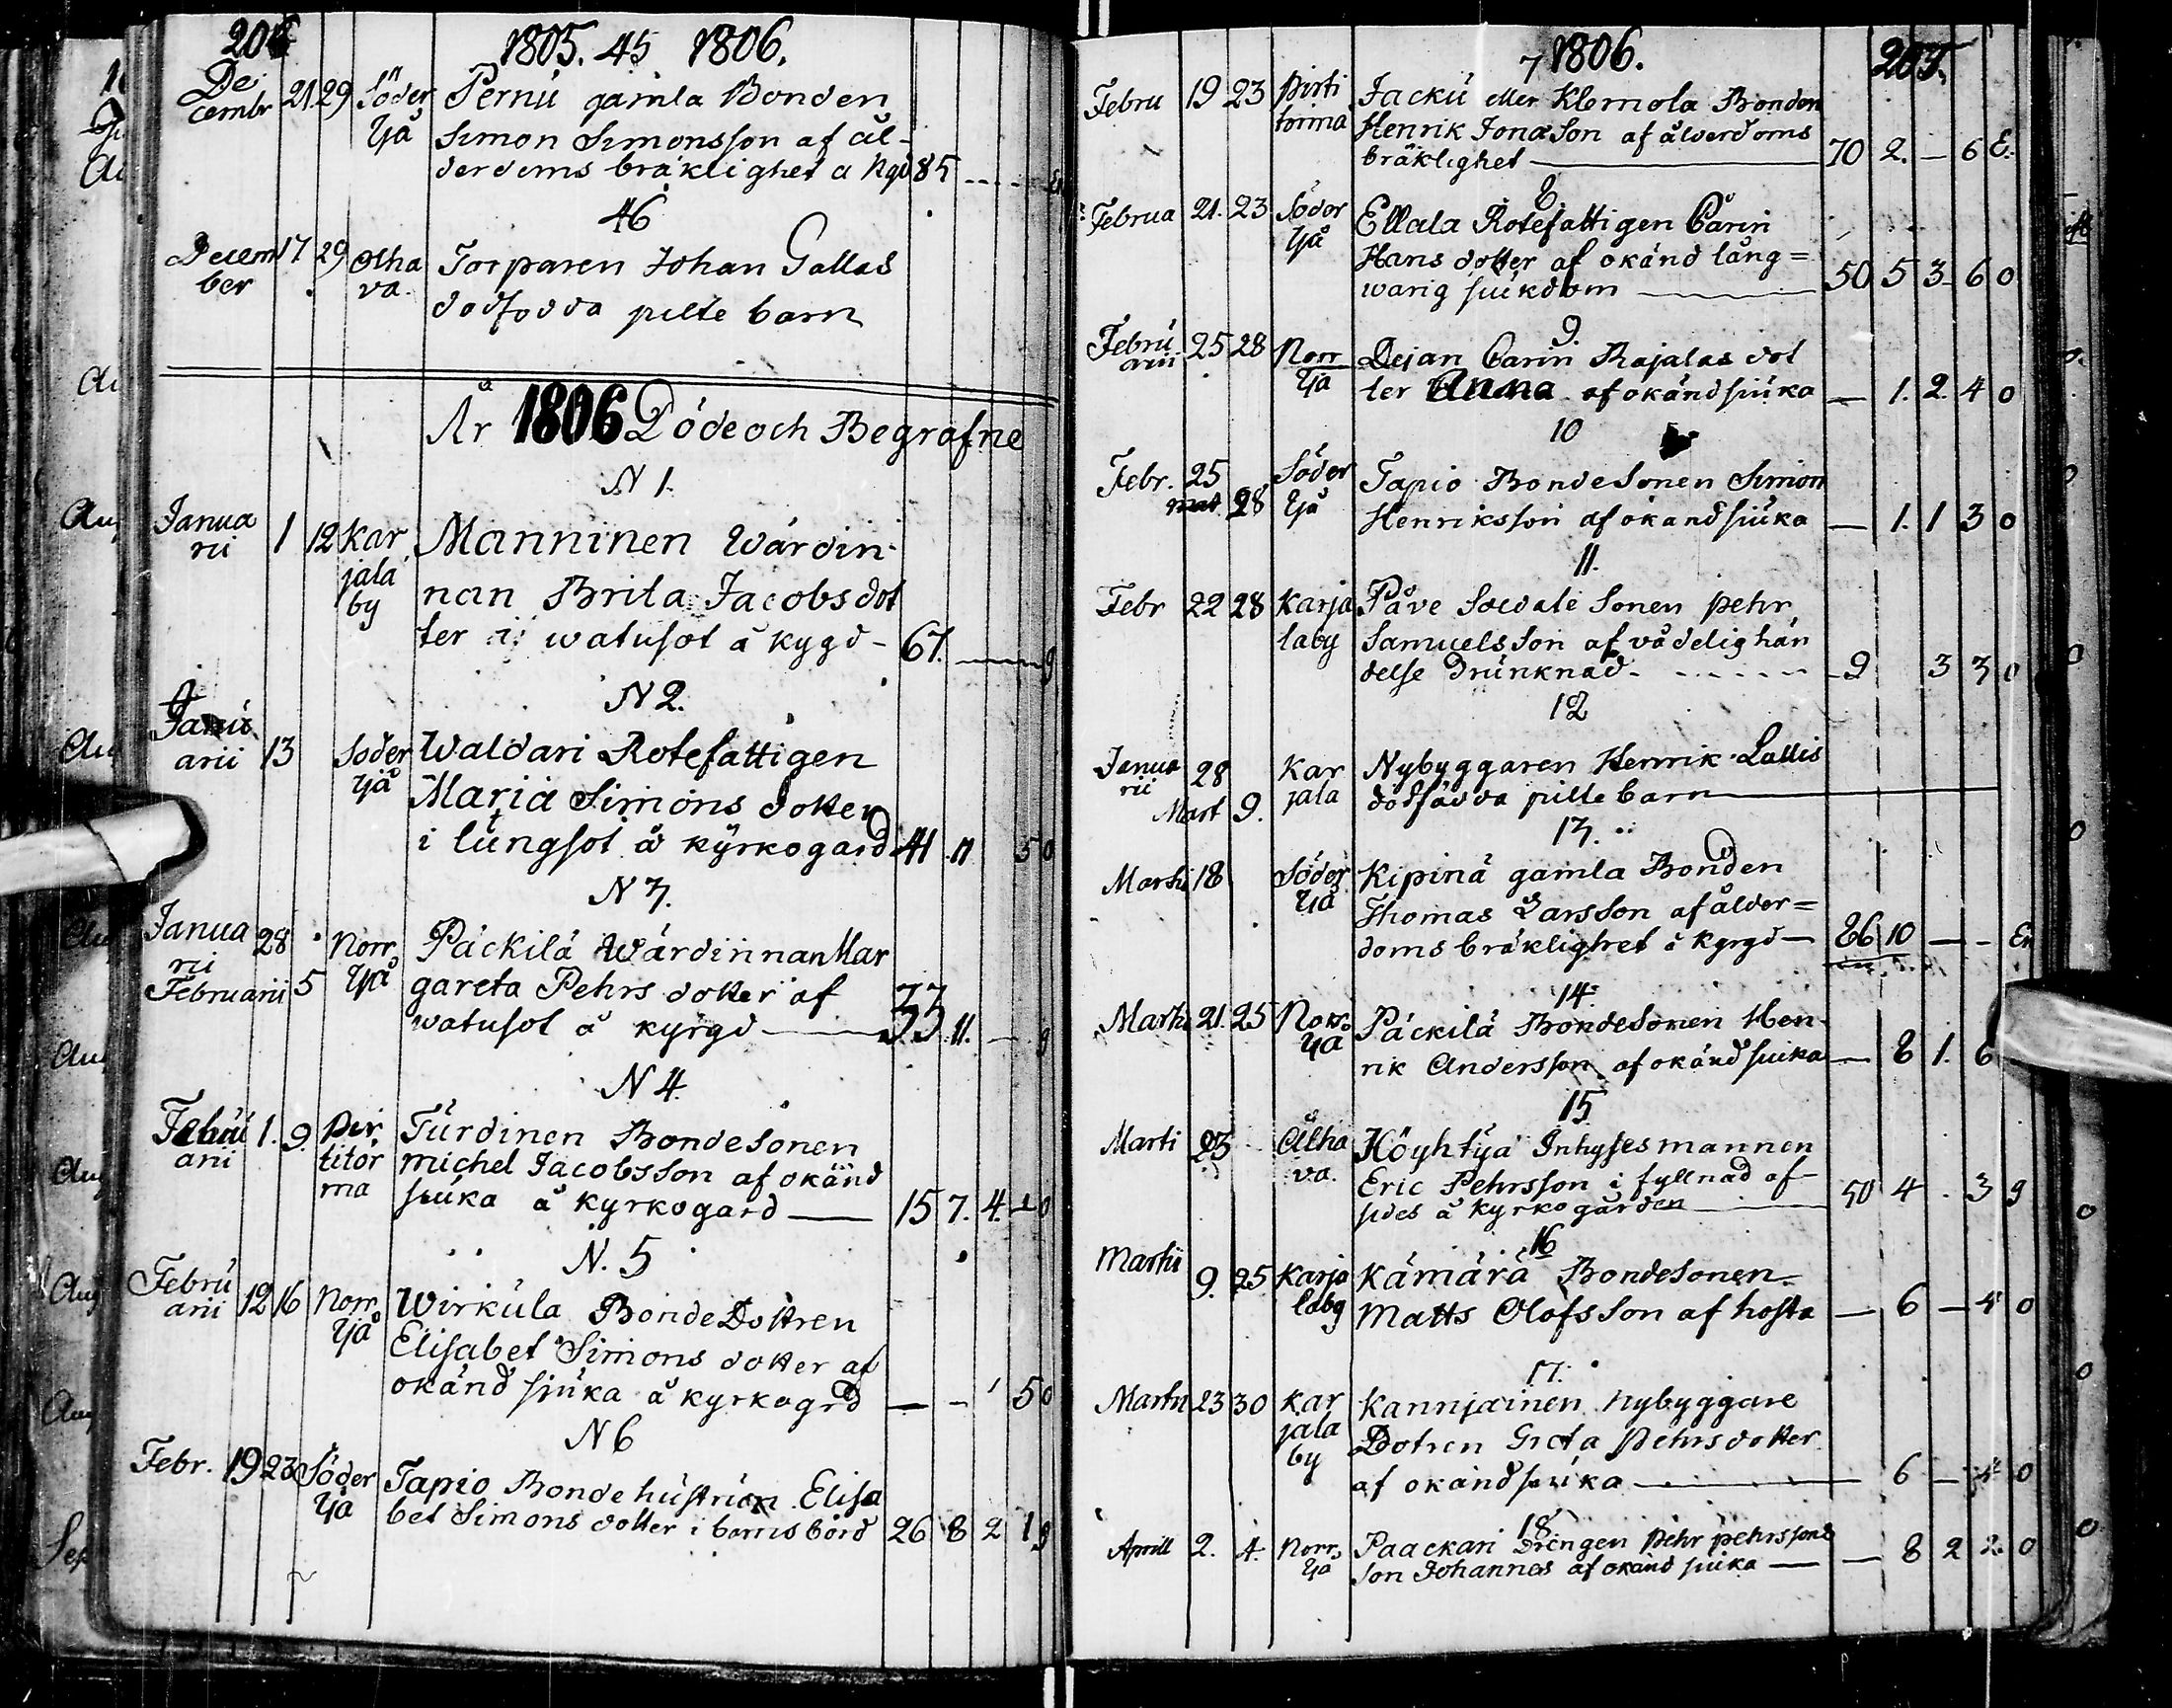 204
1805. 45 1806.
De
cembr 21 29 Söder
Yjå
Pernu gamla Bonden
Simon Simonsson af ål-
derdoms bräklighet a Kgd 85
46
Decem
ber 17 29 Olha
va
Torparen Johan Gallas
dödfödda pilte barn
År 1806 Döde och Begrafne
N 1.
Janua
rii 1 12 Kar
jala
by
Manninen Wärdin-
nan Brita Jacobsdot
ter i watusot å kygd - 67. 9
N 2.
Janu
arii 13 Söder
yjå
Waldari Rotefattigen
Maria Simons dotter
i lungsot å kyrkogård 41 11 5 0
N 3.
Janua
rii 28
Februarii 5 Norr
Yjå
Päckilä Wärdinnan Mar
gareta Pehrs dotter af
watusot å kyrgd 33 11. 9
N 4.
Febru
arii 1. 9. Pir
titör
ma
Turdinen Bondesonen
Michel Jacobsson af okänd
siuka å kyrkogård 15 7. 4. 1 0
N. 5
Febru
arii 12 16 Norr
Yjå
Wirkula Bonde Dottren
Elisabet Simons dotter af
okänd sjuka å kyrkogrd — - 1 5 0
N 6
Febr. 19 23 Söder
Yjå
Tapio Bonde hustrun Elisa
bet Simons dotter i barnsbörd 26 8 2 1 9
7 1806. 205.
Febru 19 23 Pirti
törma
Jacku eller Klemola Bonden
Henrik Jonasson af ålderdoms
bräklighet 70 2. — 6 E.
8
Februa 21. 23 Söder
Yjå
Ellala Rotefattigen Carin
Hans dotter af okänd lång=
warig siukdom 50 5 3 6 0
9.
Febru
arii 25 28 Norr
Yjå
Dejan Carin Rajalas dot
ter Anna af okänd siuka — 1. 2. 4 0
10
Febr. 25
28 Söder
Yjå
Tapio Bondesonen Simon
Henriksson af okänd siuka — 1. 1 3 0
11.
Febr 22 28 Karja
laby
Påve Soldate Sonen Pehr
Samuelsson af vådelig hän
delse Drunknad 9 3 3 0
12
Janua
rii 28
Mart 9. Kar
jala
Nybyggaren Henrik Lallis
dödfödda pilte barn
13.
Martii 18 Söder
Yjå
Kipinä gamla Bonden
Thomas Larsson af ålder=
doms bräklighet å Kyrgd — 86 10 — - En
14.
Martii 21. 25 Norr
Yjå
Päckilä Bondesonen Hen
rik Andersson af okänd siuka — 8 1. 6
15
Marti 23 Ålha
va.
Höyhtyä Inhysesmannen
Eric Pehrsson i fyllnad af
sides å kyrkogården 50 4 . 3 9
16
Martii 9. 25 Karja
laby
Kämärä Bondesonen
Matts Olofsson af hosta — 6 — 4 0
17.
Martii 23 30 Kar
jala
by
Kannjainen Nybyggare
Dotren Greta Pehrsdotter
af okänd siuka — 6 — 4 0
18
Aprill 2. 4. Norr
Yjå
Paackari Drengen Pehr Pehrssons
Son Johannes af okänd siuka — 8 2 2 0